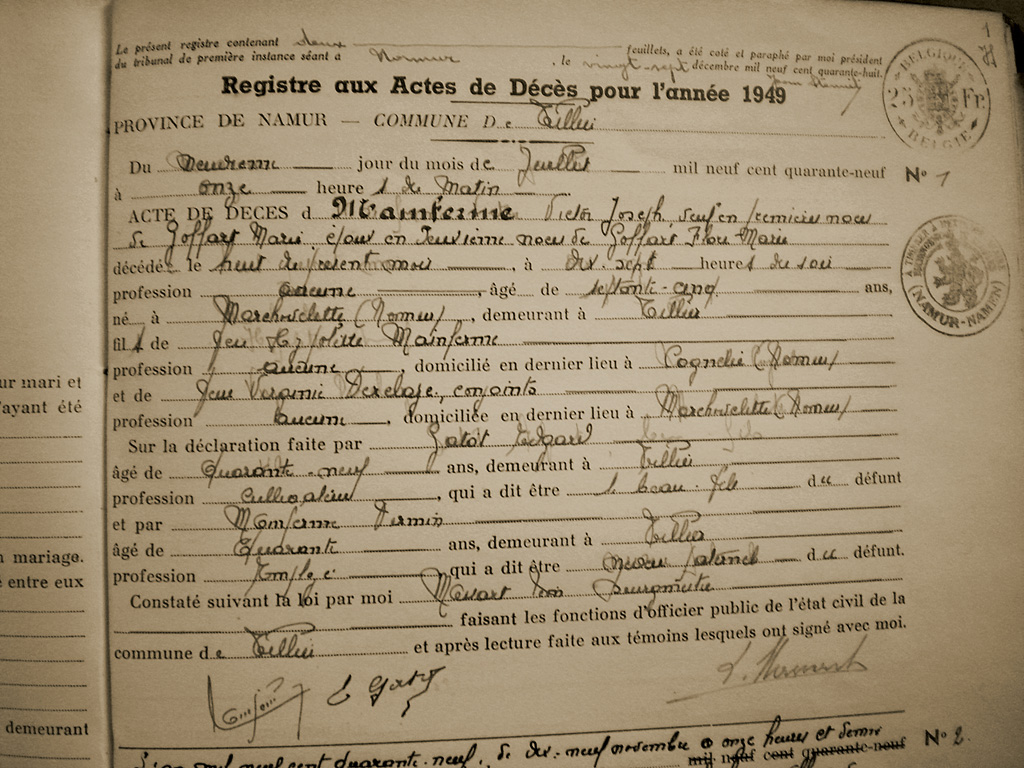 Le présent registre contenant deux feuillets, a été coté et paraphé par moi président
du tribunal de première instance séant à Namur, le vingt-sept décembre mil neuf cent quarante-huit.
1
Registre aux Actes de Décès pour l'année 1949
BELGIQUE
25 Fr.
BELGIE
PROVINCE DE NAMUR — COMMUNE De Tillier
Du jour du mois de Juillet mil neuf cent quarante-neuf N° 1
à onze heures du Matin
ACTE DE DÉCÈS d Mainferme Victor Joseph, veuf en premières noces
de Goffart Marie, époux en deuxième noces de Goffart Flore Marie
décédé le huit du présent mois, à dix-sept heures du soir
profession aucune, âgé de septante-cinq ans,
né à Marchovelette (Namur), demeurant à Tillier
(NAMUR-NAMEN)
fils de feu Hyppolite Mainferme
profession aucune, domicilié en dernier lieu à Cognelée (Namur)
et de feue Virginie, conjoints
profession aucune, domiciliée en dernier lieu à Marchovelette (Namur)
Sur la déclaration faite par Gatot Edgard
âgé de Quarante-neuf ans, demeurant à Tillier
profession cultivateur, qui a dit être le beau-fils du défunt
et par Mainferme Firmin
âgé de Quarante ans, demeurant à Tillier
profession Employé, qui a dit être neveu paternel du défunt.
Constaté suivant la loi par moi Massart Léon Bourgmestre
faisant les fonctions d'officier public de l'état civil de la
commune de Tillier et après lecture faite aux témoins lesquels ont signé avec moi.
E Gatot
L'an mil neuf cent quarante-neuf, le dix-neuf novembre à onze heures et demie N° 2.
mil neuf cent quarante-neuf
ur mari et
'ayant été
n mariage.
e entre eux
demeurant